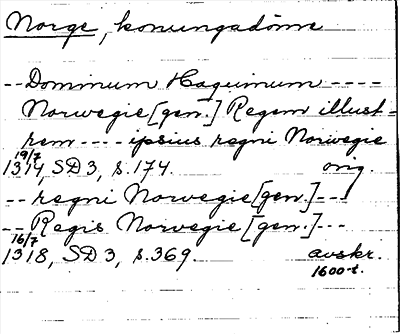 Norge, konungadöme
-- Dominum Haquinum ----
Norwegie [gen.] Regem illust-
rem ---- ipsius regni Norwegie
19/7
1314, SD 3, s. 174. orig.
-- regni Norwegie [gen.] ---
-- Regis Norwegie [gen.] ---
16/7
1318, SD 3, s. 369. avskr.
1600-t.